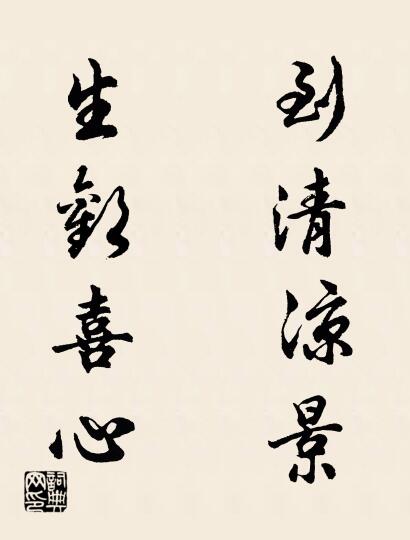 到清凉景
生歡喜心
詞典网印